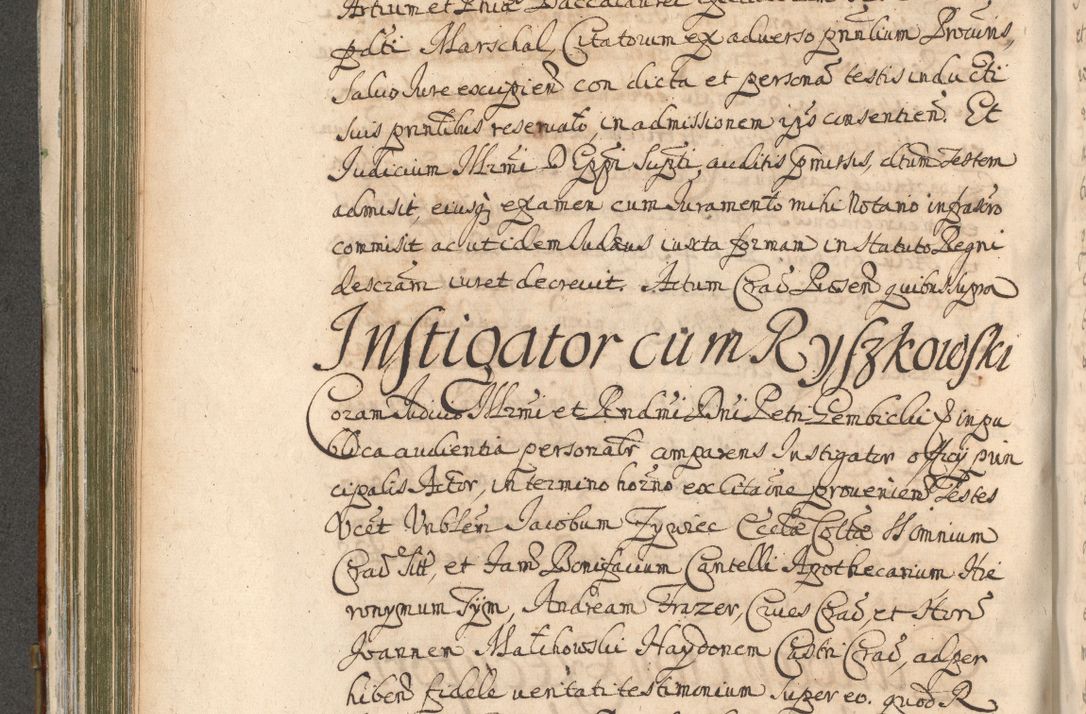 Artium et Phiæ Baccalaurei
pdti Marschal, Citatorum ex adverso prinlium Procuris,
salvo Jure excipien con dicta et persona testis inducti
suis prinlibus reservato, in admissionem ijs consentien. Et
Judicium Illrmi D Eppi supti, auditis pmissis, dtum Testem
admisit, eiusq examen cum Juramento mihi Notario infrascro
commisit ac ut idem Judæus iuxta formam in Statuto Regni
descram iuret decrevit. Actum Crad Prsen quibus supra
Instigator cum Ryszkowski
Coram Judicio Illrmi et Rndmi Dni Petri Gembicki &c in pu
blica audientia personalr comparens Instigator officij prin
cipalis Actor, in termino horno ex citaone provenien Testes
Vcet Vnblem Jacobum Zywiec Eccliæ Colltæ SS Omnium
Crad Vitt, et Fam Bonifacium Cantelli Apothecarium Hie
ronymum Tym, Andream Frazer, Cives Crad, et Hon
Joannem Malchowski Haydonem Castri Crad, ad per
hiben fidele veritati testimonium super eo. quod R